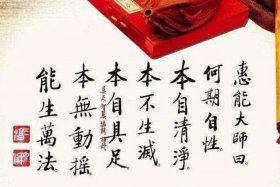 惠能大師曰
何期自性。
本自清淨。
本不生滅。
本自具足。
本無動搖。
能生萬法。